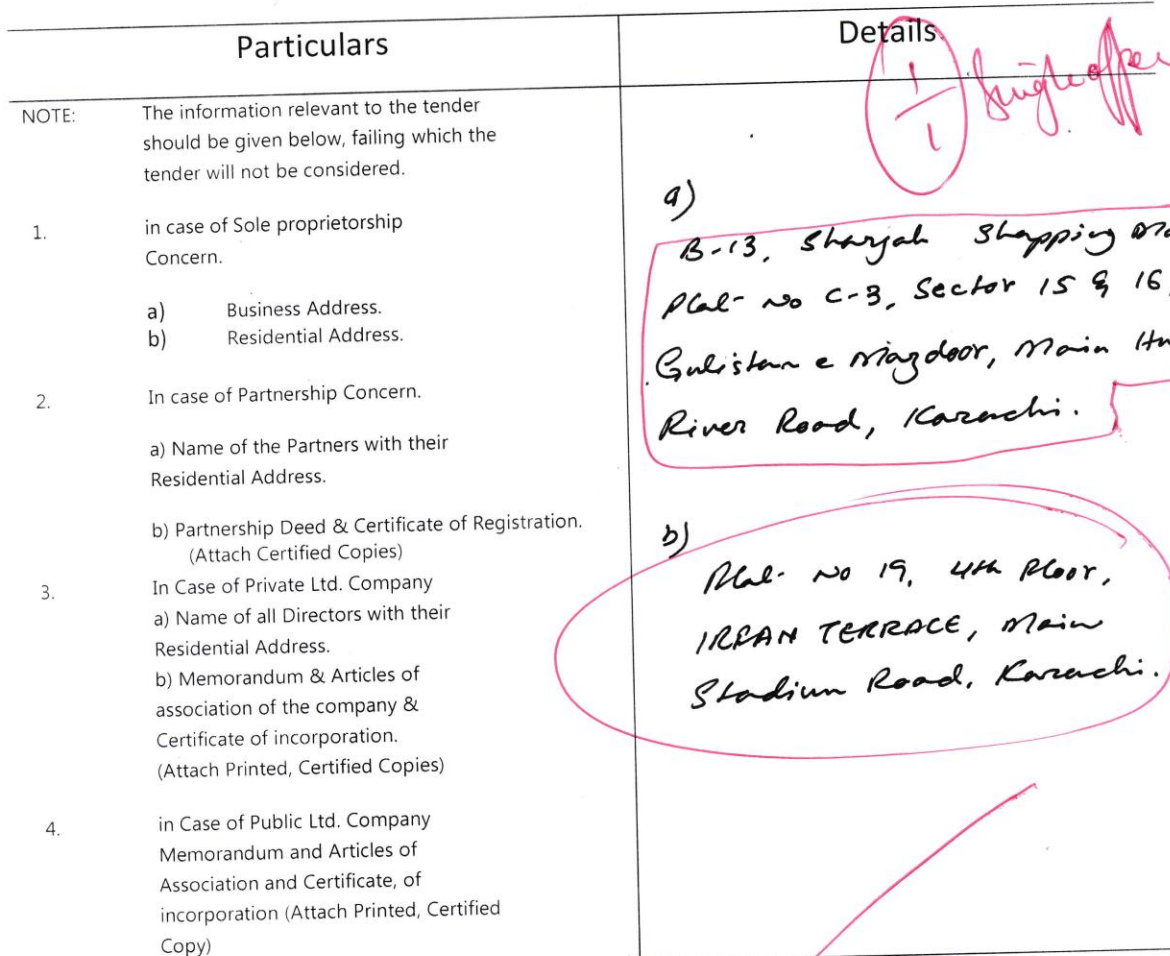 Particulars
Details.
1/1 Single offer
NOTE: The information relevant to the tender
should be given below, failing which the
tender will not be considered.
1. in case of Sole proprietorship
Concern.
a) Business Address.
b) Residential Address.
2. In case of Partnership Concern.
a) Name of the Partners with their
Residential Address.
b) Partnership Deed & Certificate of Registration.
(Attach Certified Copies)
3. In Case of Private Ltd. Company
a) Name of all Directors with their
Residential Address.
b) Memorandum & Articles of
association of the company &
Certificate of incorporation.
(Attach Printed, Certified Copies)
4. in Case of Public Ltd. Company
Memorandum and Articles of
Association and Certificate, of
incorporation (Attach Printed, Certified
Copy)
a)
B-13, Sharjah Shopping
Plot No C-3, Sector 15 & 16,
Gulistan e Mazdoor, Main
River Road, Karachi.
b)
No 19, 4th Floor,
IRFAN TERRACE, Main
Stadium Road, Karachi.